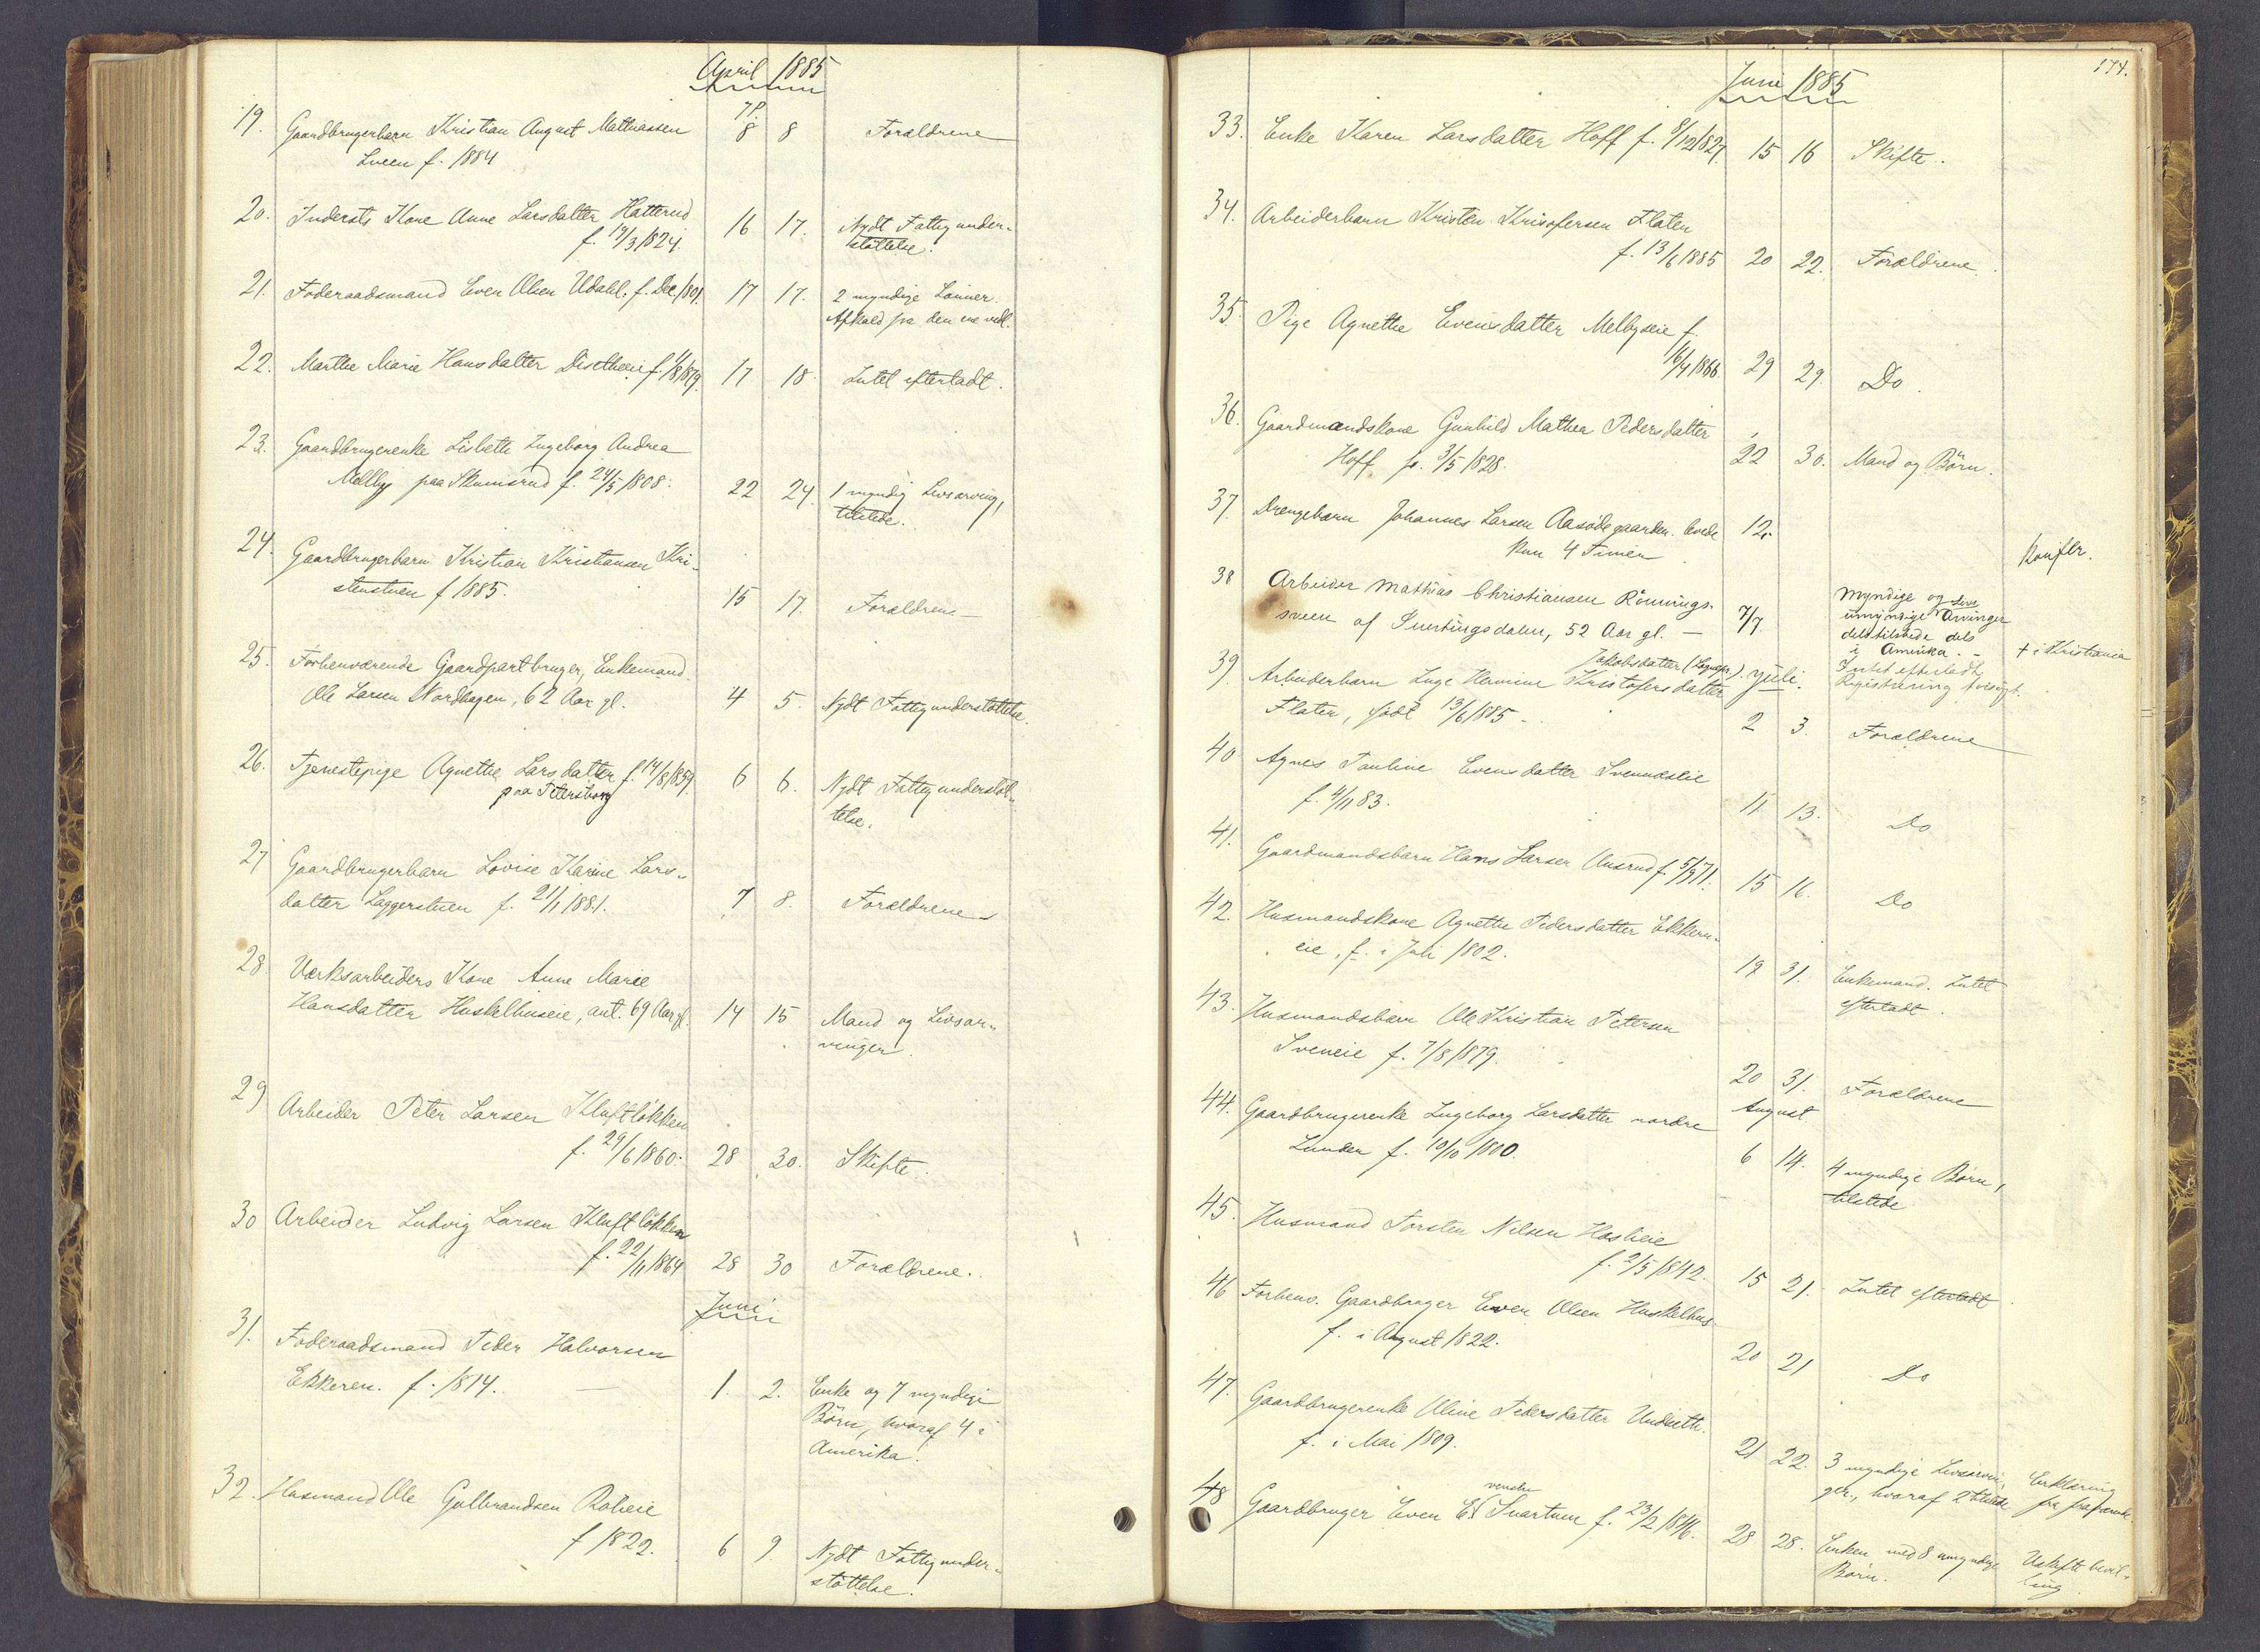 April 1885
19. Gaardbrugerbarn Kristian August Mathiassen 8 8 Forældrene
Sveen f. 1884
20. Inderste Kone Anne Larsdatter Hatterud 16 17. Nydt Fattigunder-
f. 19/3 1824. støttelse.
21. Føderaadsmand Even Olsen Udahl. f. Dec. 1801. 17 17. 2 myndige Sønner.
Afkald fra den ene vedl.
22. Marthe Marie Hansdatter Disetheie f. 1/8 1879. 17 18. Intet efterladt.
23. Gaardbrugerenke Lisbeth Ingeborg Andrea
Melby paa Skumsrud f. 24/5 1808. 22 24. 1 myndig Livsarving,
tilstede.
24. Gaardbrugerbarn Kristian Kristiansen Kri-
stenstuen f 1885. 15 17. Forældrene
25. Forhenværende Gaardpartbruger, Enkemand
Ole Larsen Nordhagen, 62 Aar gl. 4 5. Nydt Fattigunderstøttelse.
26. Tjenestepige Agnethe Larsdatter f. 14/8 1859. 6 6. Nydt Fattigunderstøt-
paa Petersborg telse.
27 Gaardbrugerbarn Lovise Karine Lars-
datter Laggerstuen f. 21/1 1881. 7 8. Forældrene
28. Værksarbeiders Kone Anne Marie
Hansdatter Huskelhuseie, ant. 69 Aar gl. 14 15 Mand og Livsar-
vinger.
29 Arbeider Peter Larsen Kluftløkken
f. 29/6 1860. 28 30. Skifte.
30 Arbeider Ludvig Larsen Kluftløkken
f. 22/11 1864 28 30 Forældrene.
Juni
31. Føderaadsmand Peder Halvorsen
Ekkeren. f. 1814. 1. 2. Enke og 7 myndige
Børn, hvoraf 4 i
Amerika.
32. Husmand Ole Gulbrandsen Røheie
f 1822. 6 9. Nydt Fattigunder-
støttelse.
174.
Juni 1885
33. Enke Karen Larsdatter Hoff f. 8/12 1827 15 16 Skifte.
34. Arbeiderbarn Kristen Kristofersen Flaten
f. 13/6 1885 20 22. Forældrene.
35. Pige Agnethe Evensdatter Melbyeie f.
16/4 1866. 29 29. Do.
36. Gaardmandskone Gunhild Mathea Pedersdatter
Hoff f. 3/5 1828. 22 30. Mand og Børn.
37. Drengebarn Johannes Larsen Aasødegaarden. levede 12.
kun 4 Timer
Konfer.
38 Arbeider Mathias Christiansen Rønnings- Myndige og
sveen af Snertingsdalen, 52 Aar gl. — 7/7 umyndige Livsarvinger
dels tilstede dels
i Amerika. – + i Kristiania
Jakobsdatter Juli. Intet efterladt,
39. Arbeiderbarn Inge Hermine Kristofersdatter Registrering
Flaten, født 13/6 1885 – 2 3. Forældrene
40. Agnes Pauline Evensdatter Svennæseie
f. 4/11 83. 11 13. Do
41. Gaardmandsbarn Hans Larsen Aasrud f. 15 16. Do
42. Husmandskone Agnethe Pedersdatter Ekkern-
eie, f. i Juli 1802. 19 31. Enkemand. Intet
efterladt.
43. Husmandsbarn Ole Kristian Petersen
Sveneie f. 7/8 1879. 20 31. Forældrene
August.
44. Gaardbrugerenke Ingeborg Larsdatter nordre
Lunden f. 19/10 1800. 6 14. 4 myndige Børn,
tilstede
45. Husmand Torsten Nilsen Haslieie
f. 2/5 1842. 15 21. Intet efterladt.
46 Forhenv. Gaardbruger Even Olsen Huskelhus.
f. i August 1822. 20 21 Do
47. Gaardbrugerenke Oline Pedersdatter Undseth.
f. i Mai 1809. 21 22. 3 myndige Livsarvin- Erklæring
ger, hvoraf 2 tilstede
48 Gaardbruger Even vendre Snartum f. 23/2 1846. 28 28. Enken med 8 umyndige Uskiftebevil-
Børn. ling.